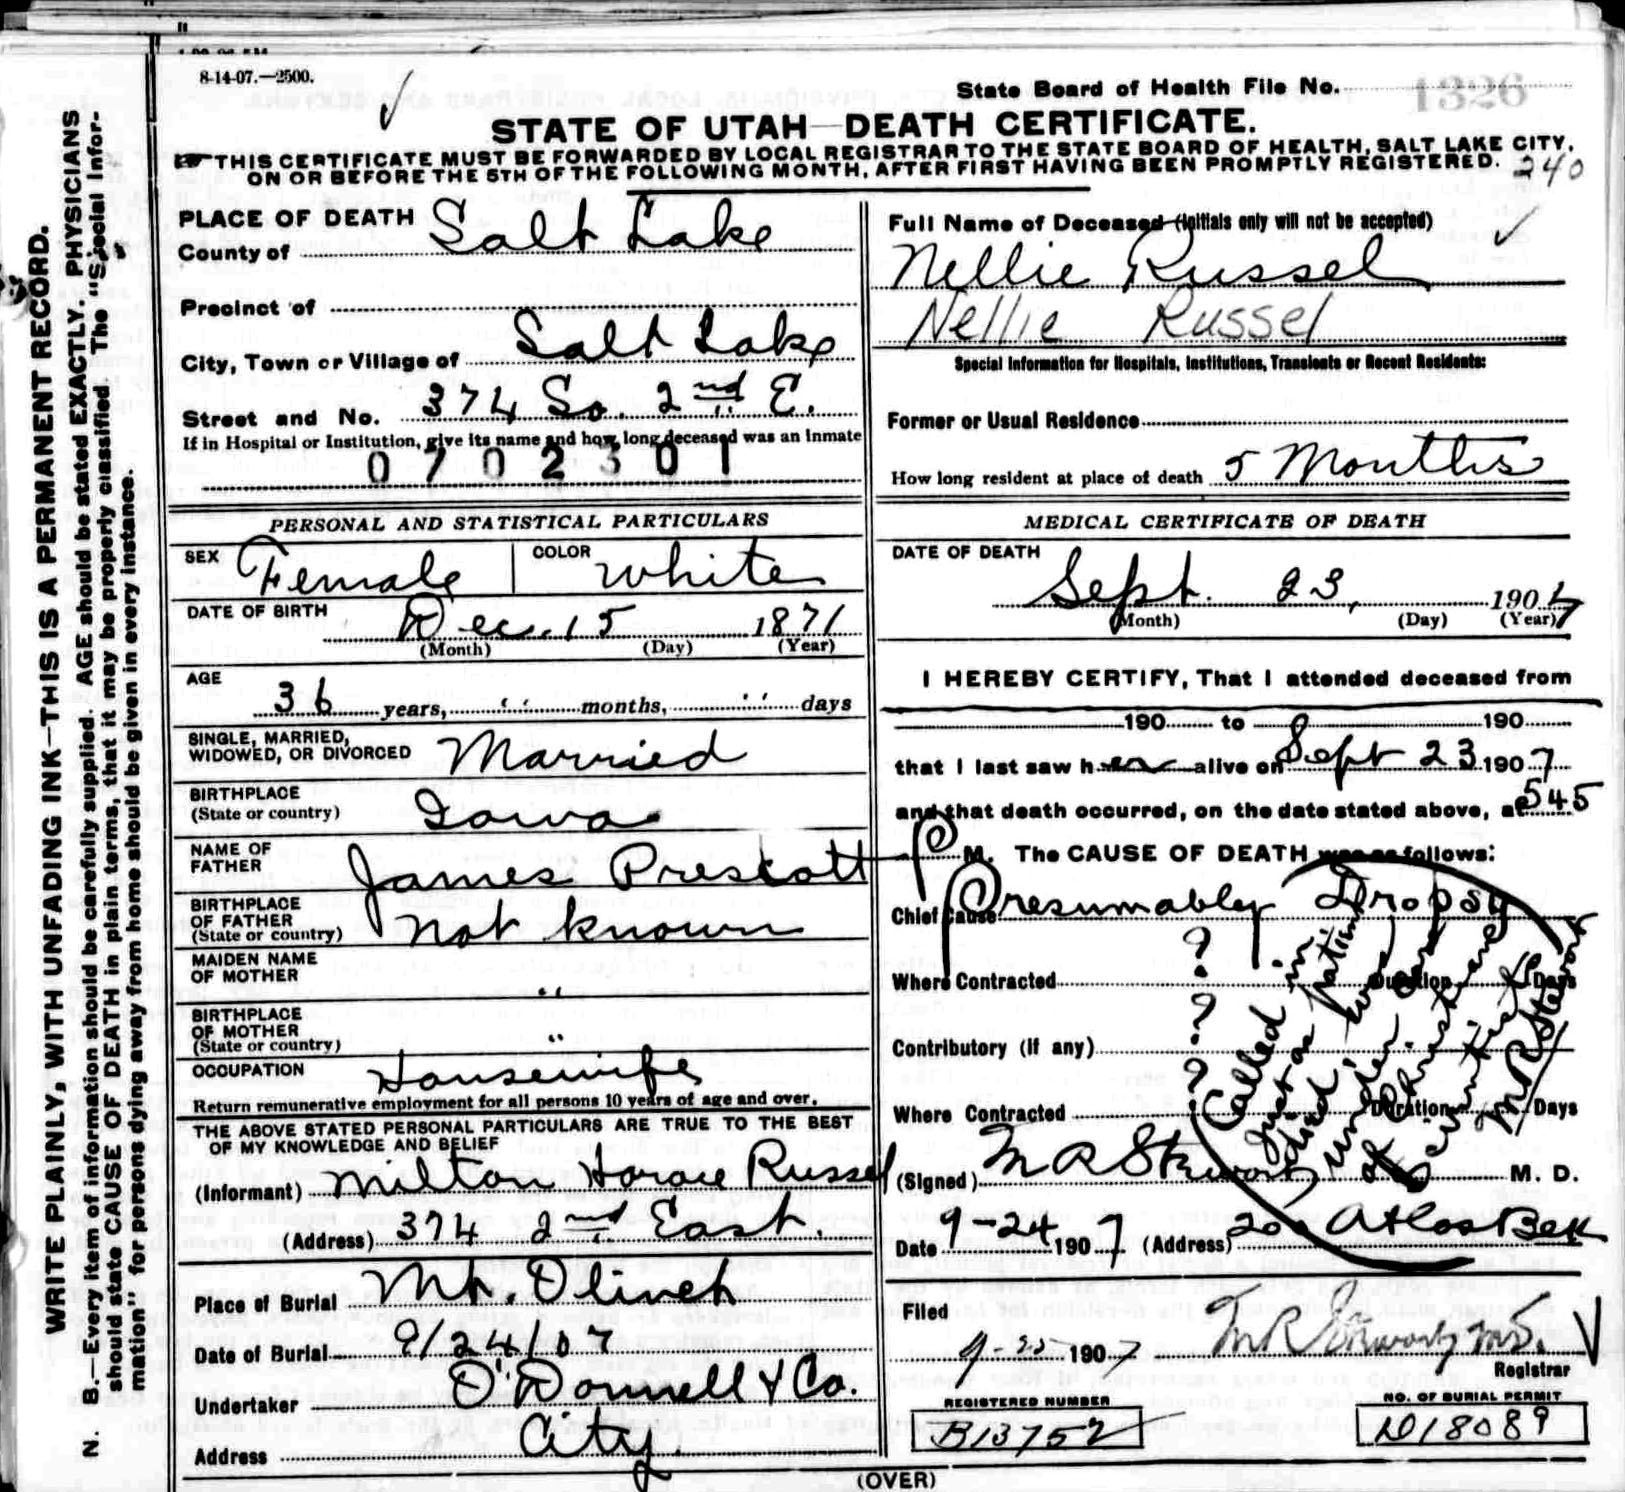 8-14-07.—2500.
State Board of Health File No. 1326
STATE OF UTAH—DEATH CERTIFICATE.
THIS CERTIFICATE MUST BE FORWARDED BY LOCAL REGISTRAR TO THE STATE BOARD OF HEALTH, SALT LAKE CITY,
ON OR BEFORE THE 5TH OF THE FOLLOWING MONTH, AFTER FIRST HAVING BEEN PROMPTLY REGISTERED.
240
WRITE PLAINLY, WITH UNFADING INK—THIS IS A PERMANENT RECORD.
N. B.—Every item of information should be carefully supplied. AGE should be stated EXACTLY. PHYSICIANS
should state CAUSE OF DEATH in plain terms, that it may be properly classified. The "Special Infor-
mation" for persons dying away from home should be given in every instance.
PLACE OF DEATH
County of Salt Lake
Precinct of
City, Town or Village of Salt Lake
Street and No. 374 So. 2nd E.
If in Hospital or Institution, give its name and how long deceased was an Inmate
0702301
PERSONAL AND STATISTICAL PARTICULARS
SEX Female COLOR White
DATE OF BIRTH Dec. 15 1871
(Month) (Day) (Year)
AGE
36 years, " months, " days
SINGLE, MARRIED,
WIDOWED, OR DIVORCED Married
BIRTHPLACE
(State or country) Iowa
NAME OF
FATHER James Prescott
BIRTHPLACE
OF FATHER
(State or country) not known
MAIDEN NAME
OF MOTHER "
BIRTHPLACE
OF MOTHER
(State or country) "
OCCUPATION Housewife
Return remunerative employment for all persons 10 years of age and over.
THE ABOVE STATED PERSONAL PARTICULARS ARE TRUE TO THE BEST
OF MY KNOWLEDGE AND BELIEF
(Informant) Milton Horace Russel
(Address) 374 2nd East.
Place of Burial Mt. Olivet
Date of Burial 9/24/07
Undertaker O'Donnell & Co.
Address City.
Full Name of Deceased (Initials only will not be accepted)
Nellie Russel
Nellie Russel
Special Information for Hospitals, Institutions, Transients or Recent Residents:
Former or Usual Residence
How long resident at place of death 5 Months
MEDICAL CERTIFICATE OF DEATH
DATE OF DEATH
Sept. 23, 1907
(Month) (Day) (Year)
I HEREBY CERTIFY, That I attended deceased from
190 to 190
that I last saw her alive on Sept 23 1907
and that death occurred, on the date stated above, at 545
P M. The CAUSE OF DEATH was as follows:
Chief Cause Presumably Dropsy
Where Contracted ? Duration ? Days
Contributory (if any) ?
Where Contracted ? Duration Days
Called in
Just as patient
died; was
under care
of Christian
Scientist
M R Stewart
(Signed) M R Stewart M. D.
Date 9-24 1907 (Address) 200 Atlas Bck
Filed
9-25 1907 M R Stewart M.D.
Registrar
REGISTERED NUMBER
B13752
NO. OF BURIAL PERMIT
D18089
(OVER)